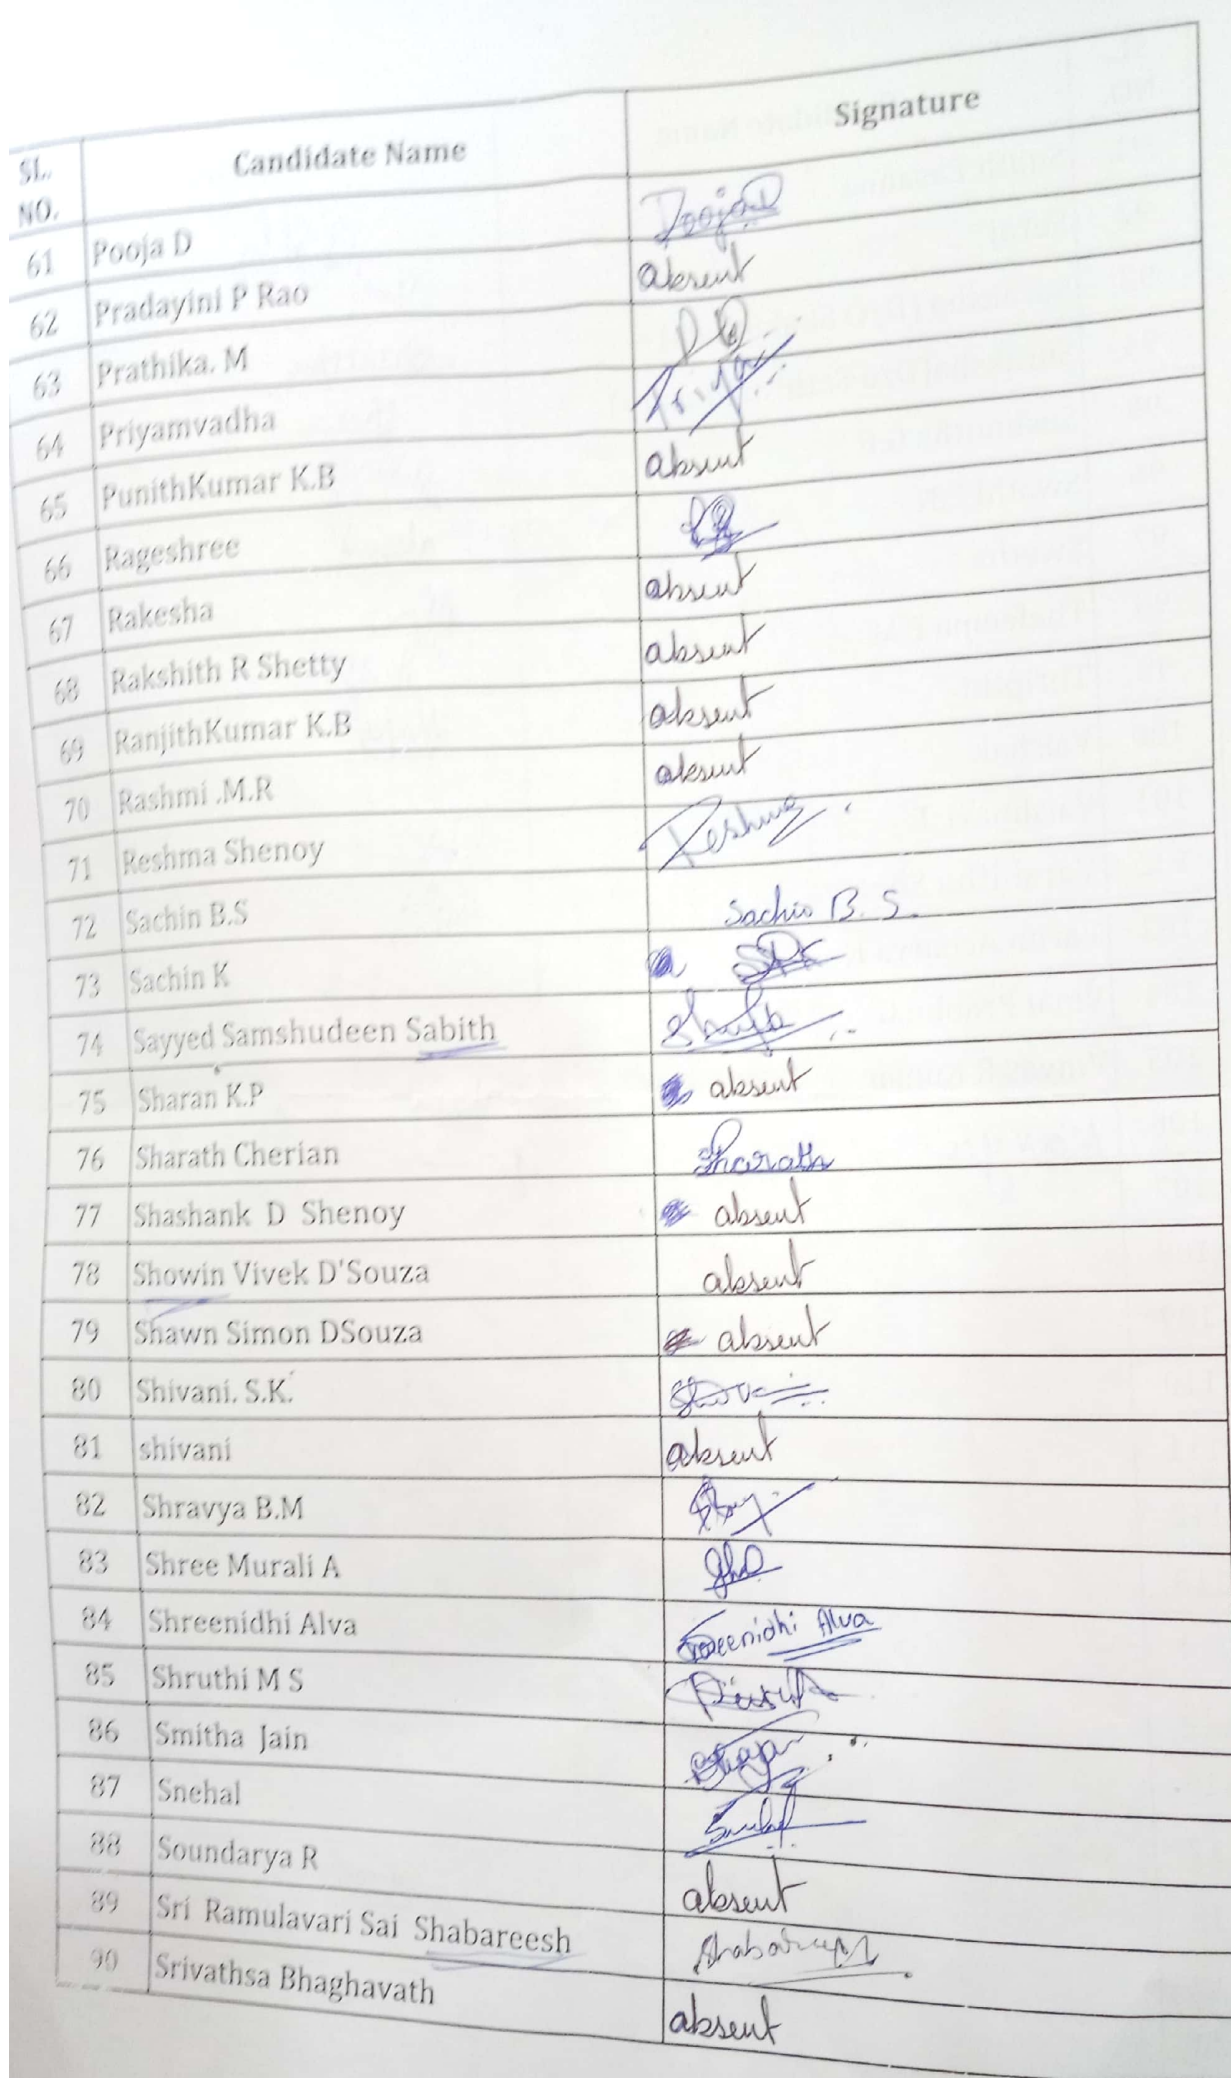 SL. NO. Candidate Name Signature
61 Pooja D PoojaD
62 Pradayini P Rao absent
63 Prathika. M
64 Priyamvadha Priya
65 PunithKumar K.B absent
66 Rageshree
67 Rakesha absent
68 Rakshith R Shetty absent
69 RanjithKumar K.B absent
70 Rashmi .M.R absent
71 Reshma Shenoy Reshma
72 Sachin B.S Sachin B. S.
73 Sachin K
74 Sayyed Samshudeen Sabith
75 Sharan K.P absent
76 Sharath Cherian Sharath
77 Shashank D Shenoy absent
78 Showin Vivek D'Souza absent
79 Shawn Simon DSouza absent
80 Shivani. S.K. Shivani
81 shivani absent
82 Shravya B.M
83 Shree Murali A
84 Shreenidhi Alva Shreenidhi Alva
85 Shruthi M S
86 Smitha Jain
87 Snehal Snehal
88 Soundarya R absent
89 Sri Ramulavari Sai Shabareesh Shabareesh
90 Srivathsa Bhaghavath absent